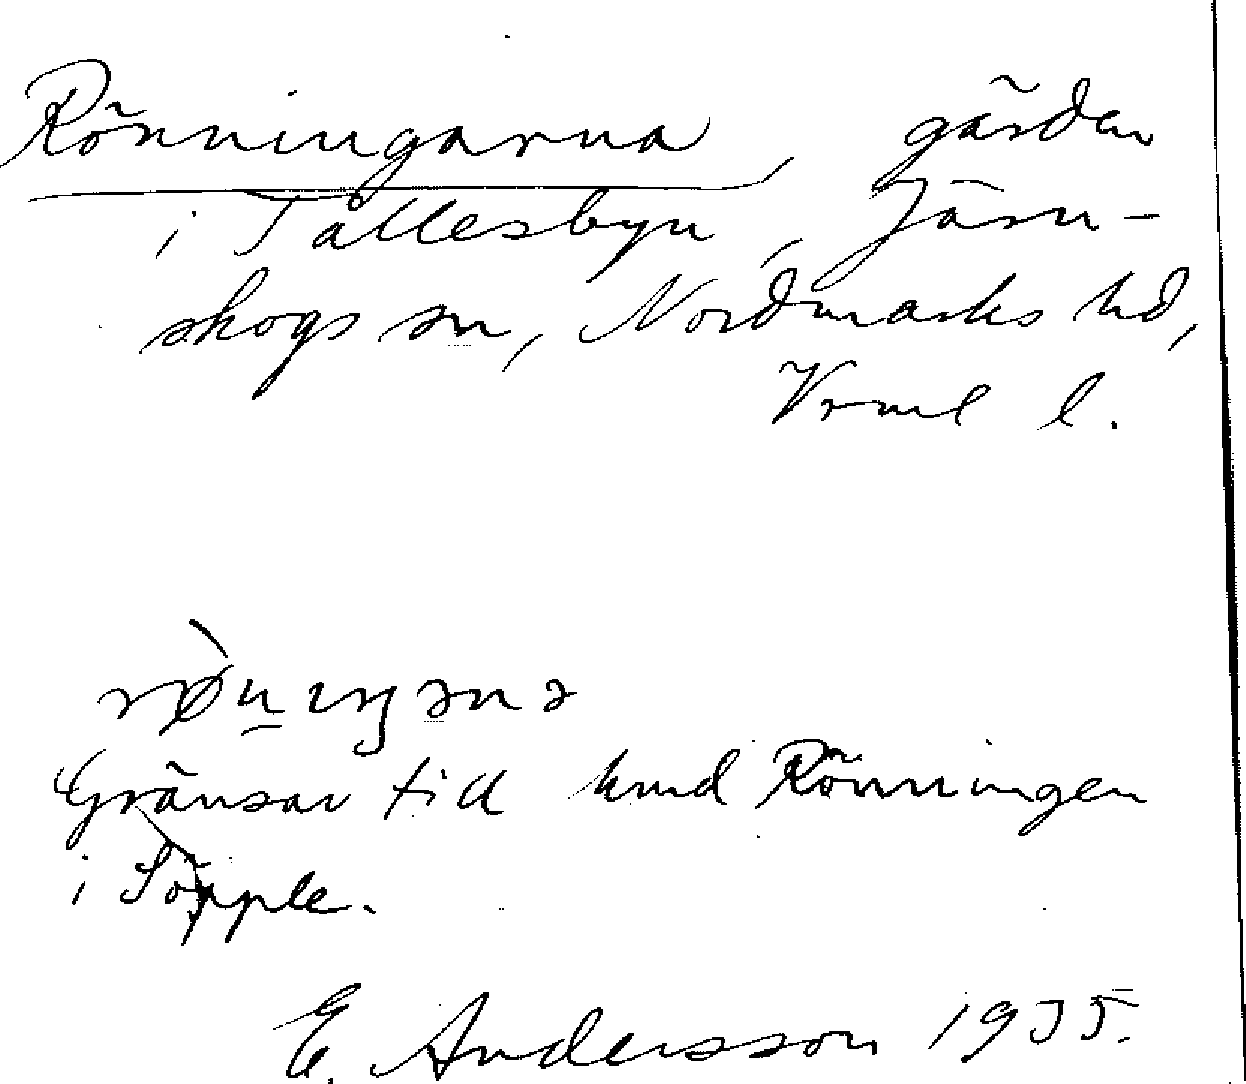 Rönningarna, gården
i Tållesbyn, Järn-
skogs sn, Nordmarks hd,
Vrml l.
Gränsar till hmd Rönningen
i Söpple.
E. Andersson 1935.